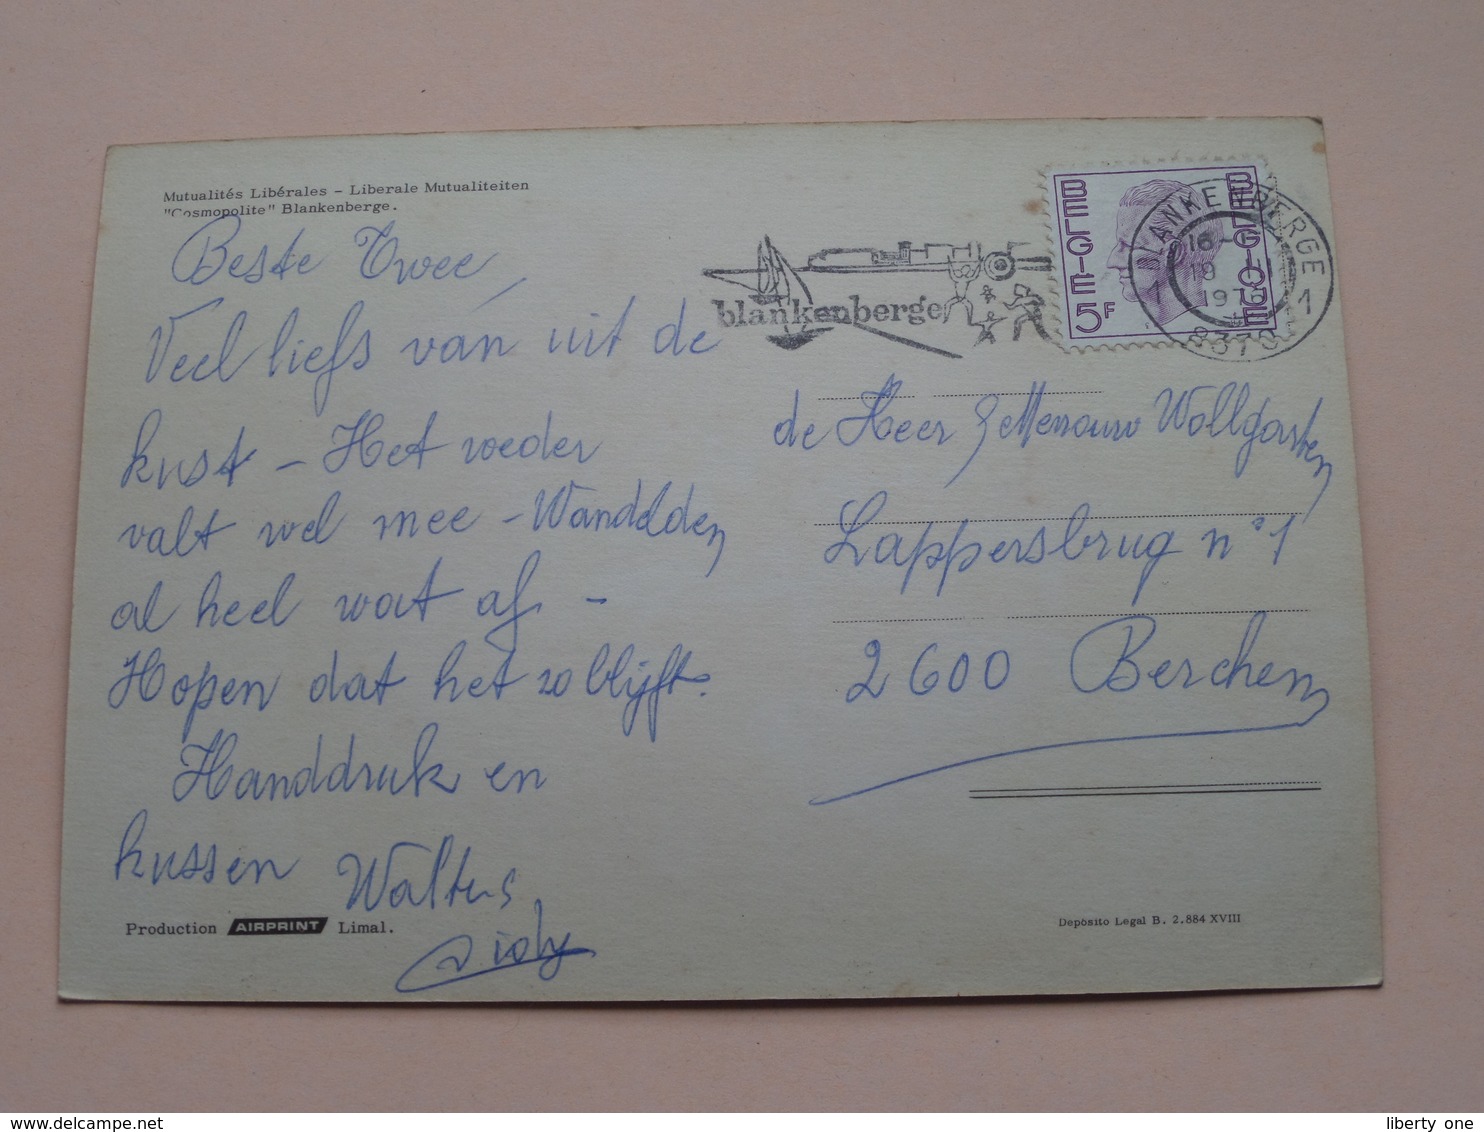 Mutualités Libérales - Liberale Mutualiteiten
"Cosmopolite" Blankenberge.
Beste Twee,
Veel liefs van uit de
kust - Het weder
valt wel mee - Wandelden
al heel wat af -
Hopen dat het zo blijft.
Handdruk en
kussen Walter
Production AIRPRINT Limal.
blankenberge
BELGIE 5F BELGIQUE
BLANKENBERGE
16-
19
1976
1 1
8370
de Heer & Mevrouw Wollgarten
Lappersbrug n° 1
2600 Berchem
Deposito Legal B. 2.884 XVIII
liberty one